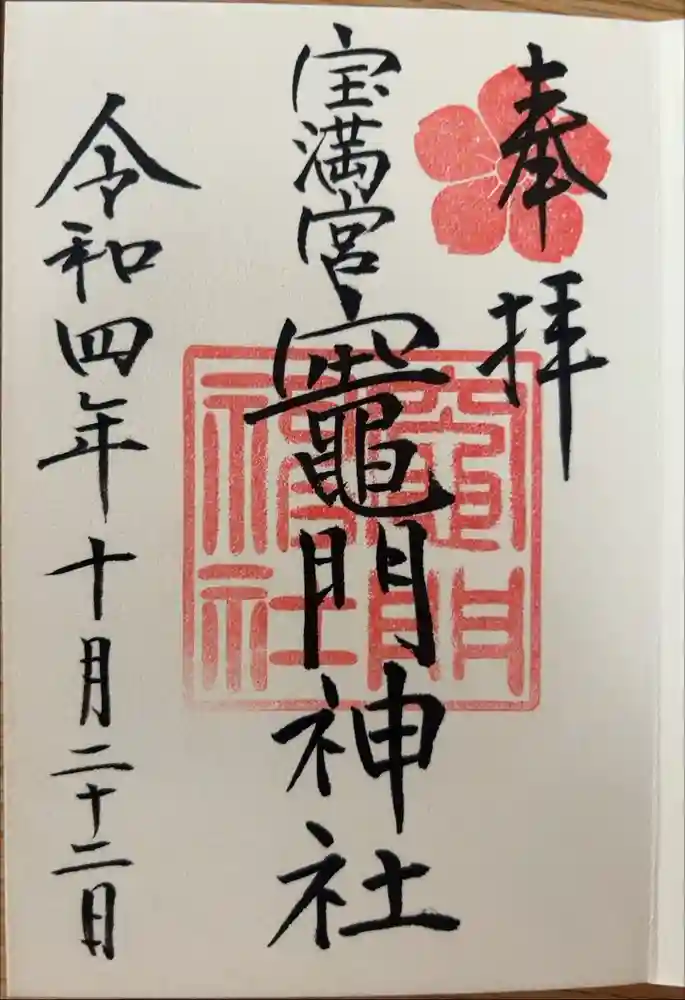 奉拝
宝満宮
竈門神社
竈門神社
令和四年十月二十二日